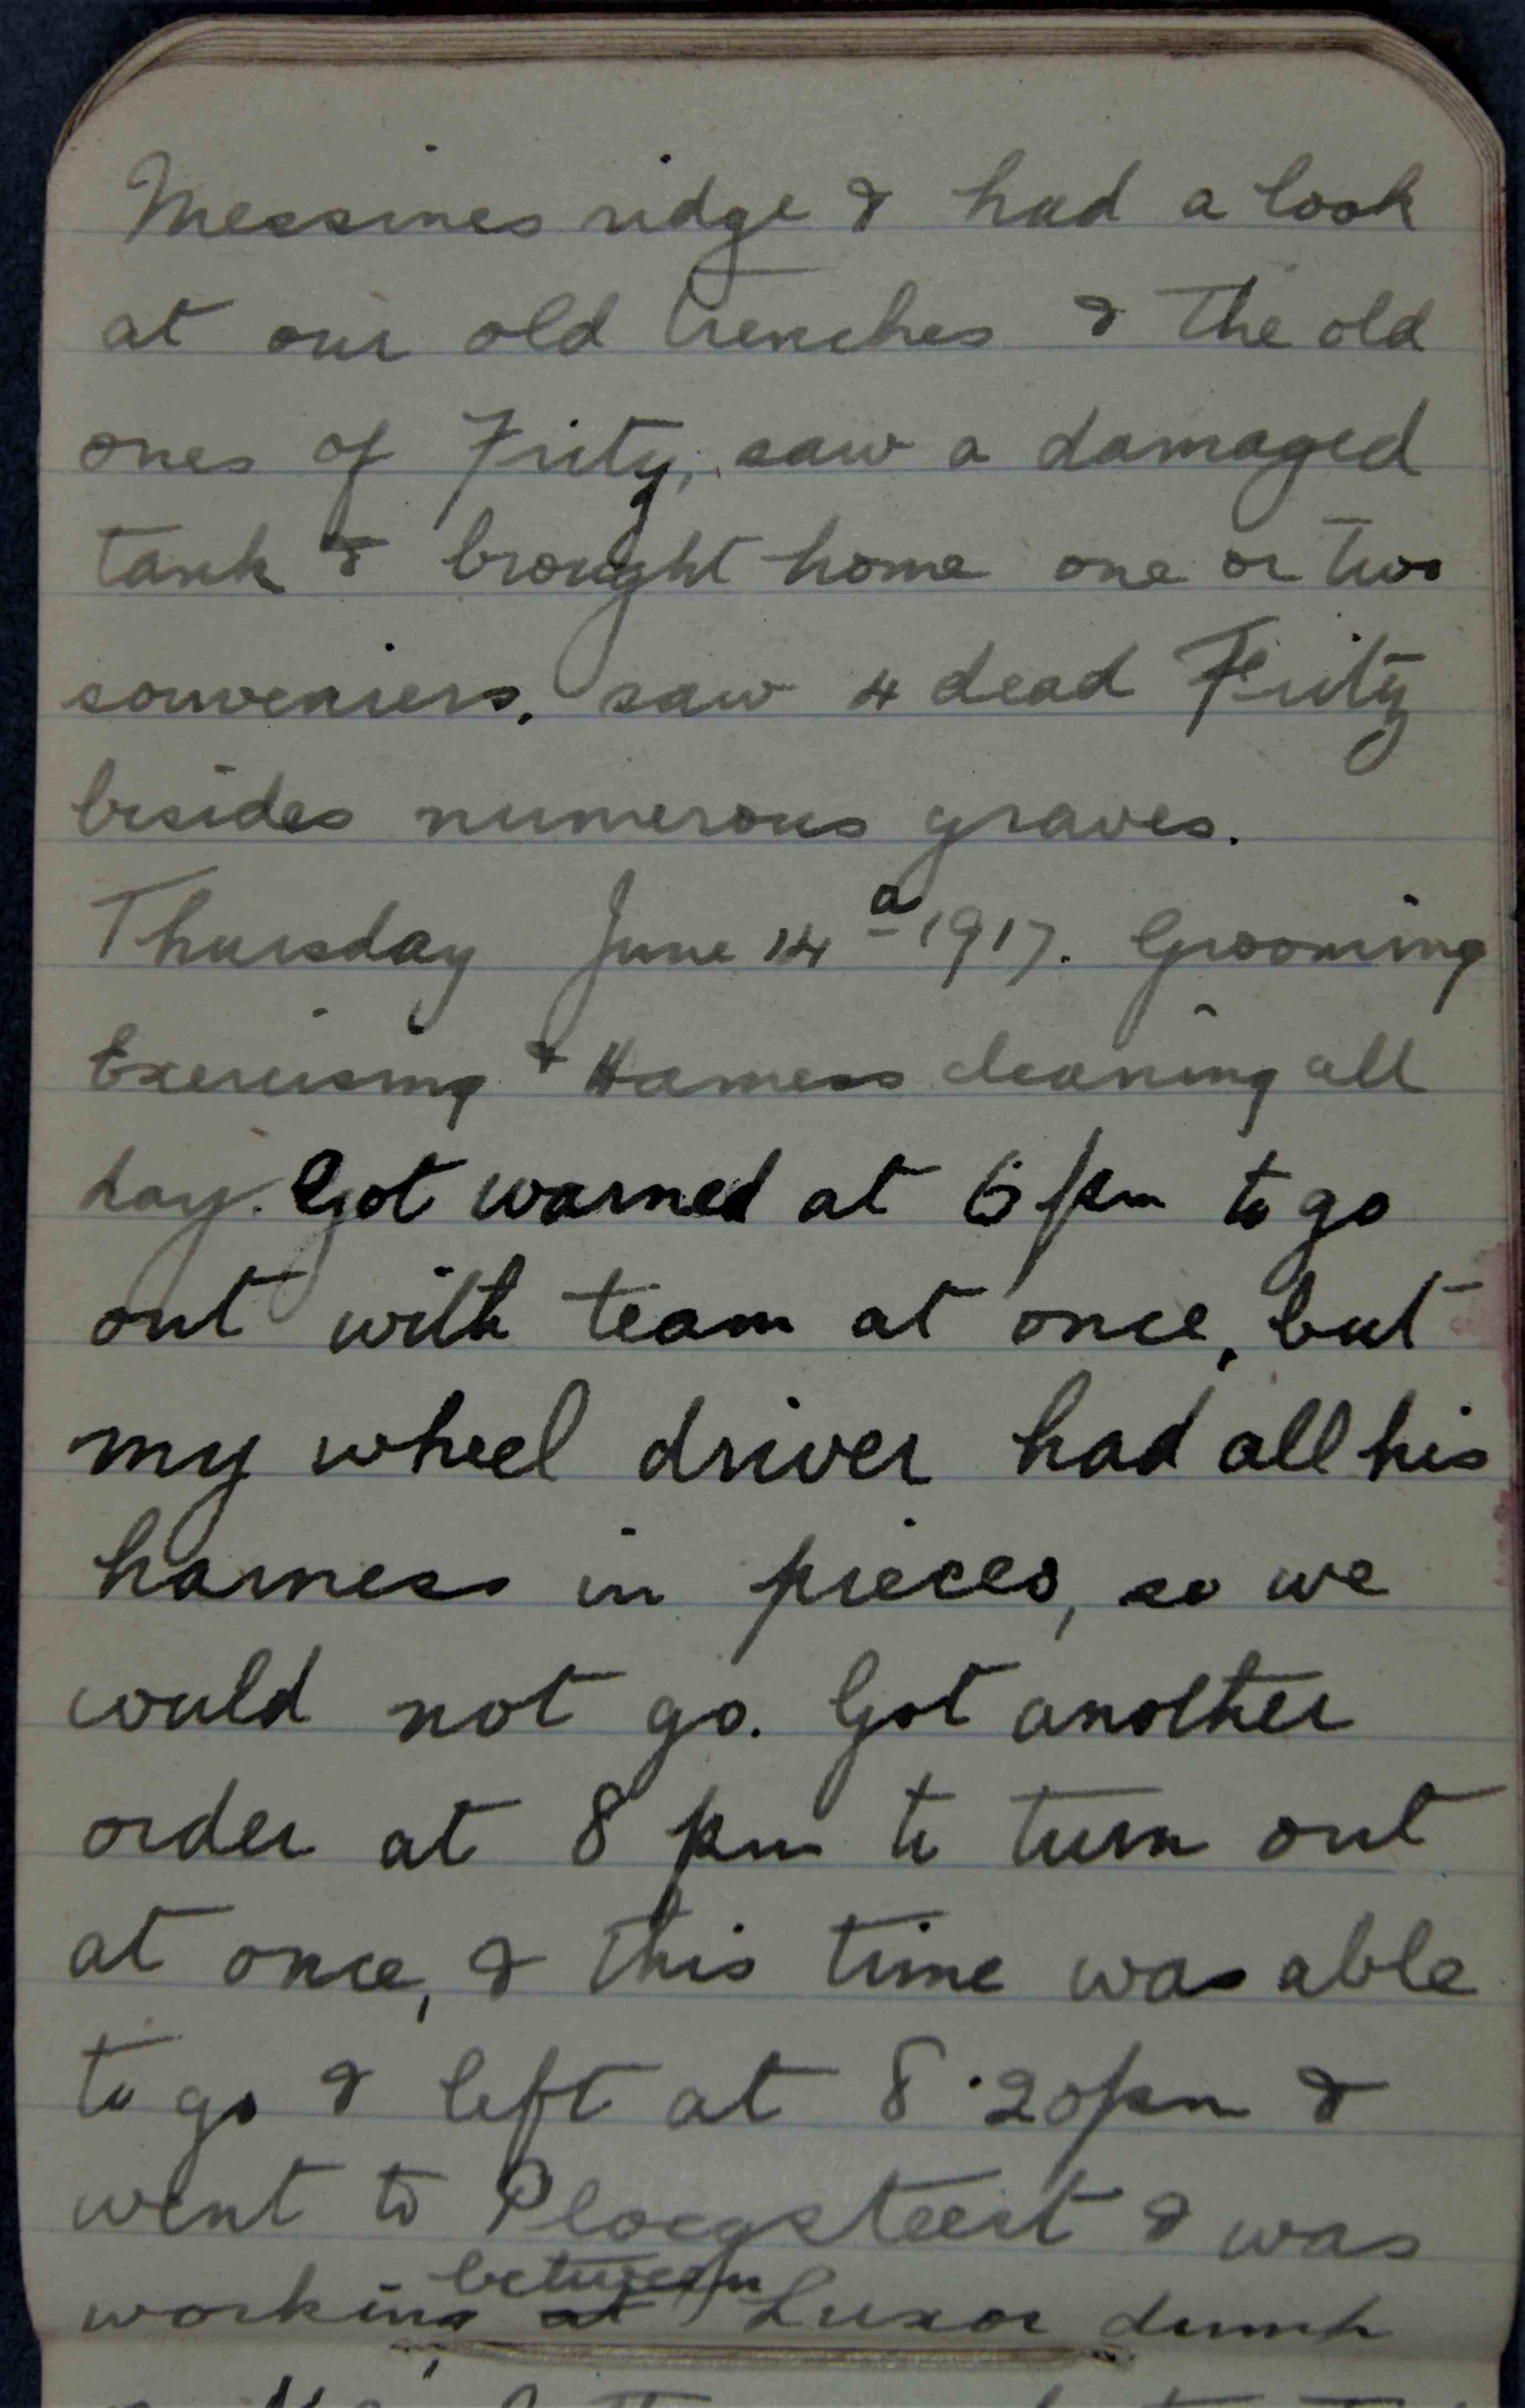 Messines ridge & had a look
at our old trenches & the old
ones of Fritz, saw a damaged
tank & brought home one or two
souveniers. saw 4 dead Fritz
besides numerous graves.
Thursday June 14th 1917. Grooming
Exercising & Harness cleaning all
day. Got warned at 6 pm to go
out with team at once, but
my wheel driver had all his
harness in pieces, so we
could not go. Got another
order at 8 pm to turn out
at once, & this time was able
to go & left at 8.20 pm &
went to Ploegsteert & was
working at between Luxor dump